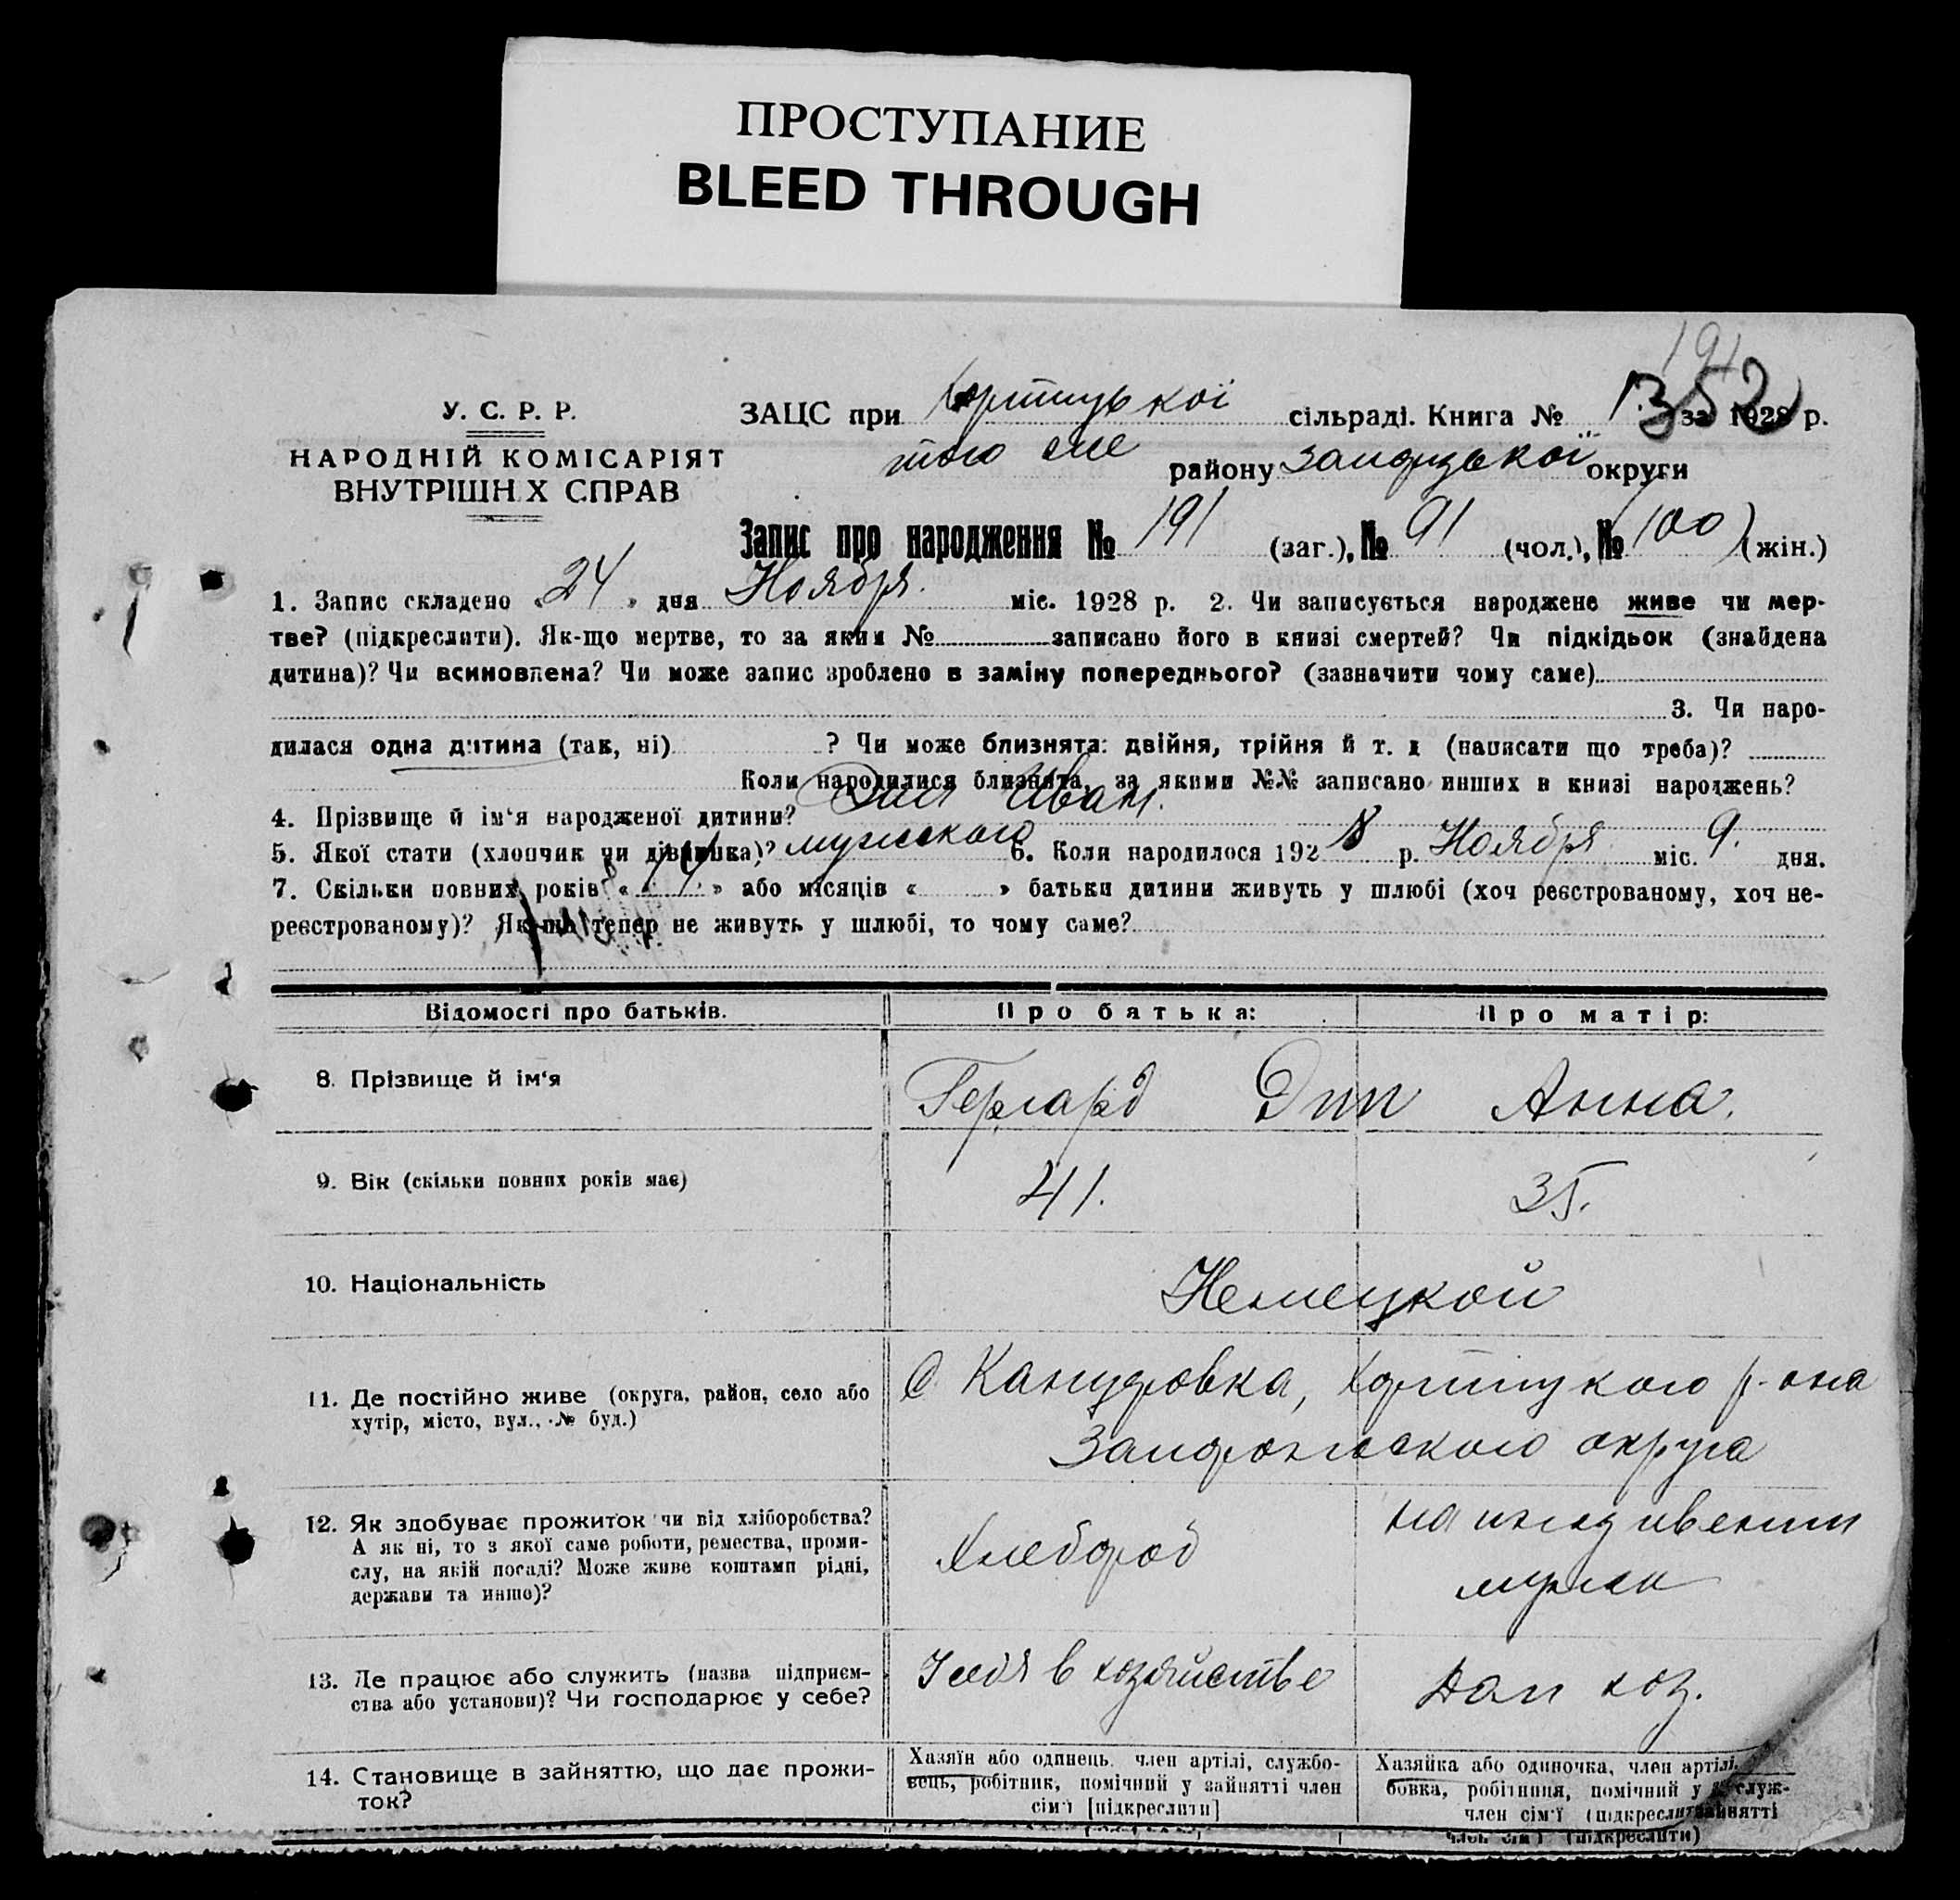 ПРОСТУПАНИЕ
BLEED THROUGH
191
352
У. С. Р. Р.
НАРОДНІЙ КОМІСАРІЯТ
ВНУТРІШН Х СПРАВ
ЗАЦС при Хортицької сільраді. Книга № 1 за 1928 р.
того же району Запорізької округи
Запис про народження № 191 (заг.), № 91 (чол.), № 100 (жін.)
1. Запис складено « 24 » дня Ноября. міс. 1928 р. 2. Чи записується народжене живе чи мер-
тве? (підкреслити). Як-що мертве, то за яким № записано його в книзі смертей? Чи підкідьок (знайдена
дитина)? Чи всиновлена? Чи може запис зроблено в заміну попереднього? (зазначити чому саме)
3. Чи наро-
дилася одна дитина (так, ні) ? Чи може близнята: двійня, трійня й т. д (написати що треба)?
Коли народилися близнята, за якими №№ записано инших в книзі народжень?
4. Прізвище й ім'я народженої дитини? Эпп Иван.
5. Якої стати (хлопчик чи дівчинка)? мужского 6. Коли народилося 1928 р. Ноября міс. 9. дня.
7. Скільки повних років « 14 » або місяців « » батьки дитини живуть у шлюбі (хоч реєстрованому, хоч не-
реєстрованому)? Як-що тепер не живуть у шлюбі, то чому саме?
Відомості про батьків. Про батька: Про матір:
8. Прізвище й ім'я Гергард Эпп Анна.
9. Вік (скільки повних років має) 41. 35.
10. Національність Немецкой
11. Де постійно живе (округа, район, село або
хутір, місто, вул., № буд.)
С Канцеровка, Хортицкого р-она
Запорожского округа
12. Як здобуває прожиток чи від хліборобства?
А як ні, то з якої саме роботи, ремества, проми-
слу, на якій посаді? Може живе коштами рідні,
держави та инше)?
Хлебороб
на иждивении
мужа
13. Де працює або служить (назва підприєм-
ства або установи)? Чи господарює у себе?
У себя в хозяйстве
Дом хоз.
14. Становище в зайняттю, що дає прожи-
ток?
Хазяїн або одинець, член артілі, службо-
вець, робітник, помічний у зайнятті член
сім'ї [підкреслити]
Хазяйка або одиночка, член артілі,
служ-
бовка, робітниця, помічний у зайнятті
член сім'ї (підкреслити)
член сім'ї (підкреслити)